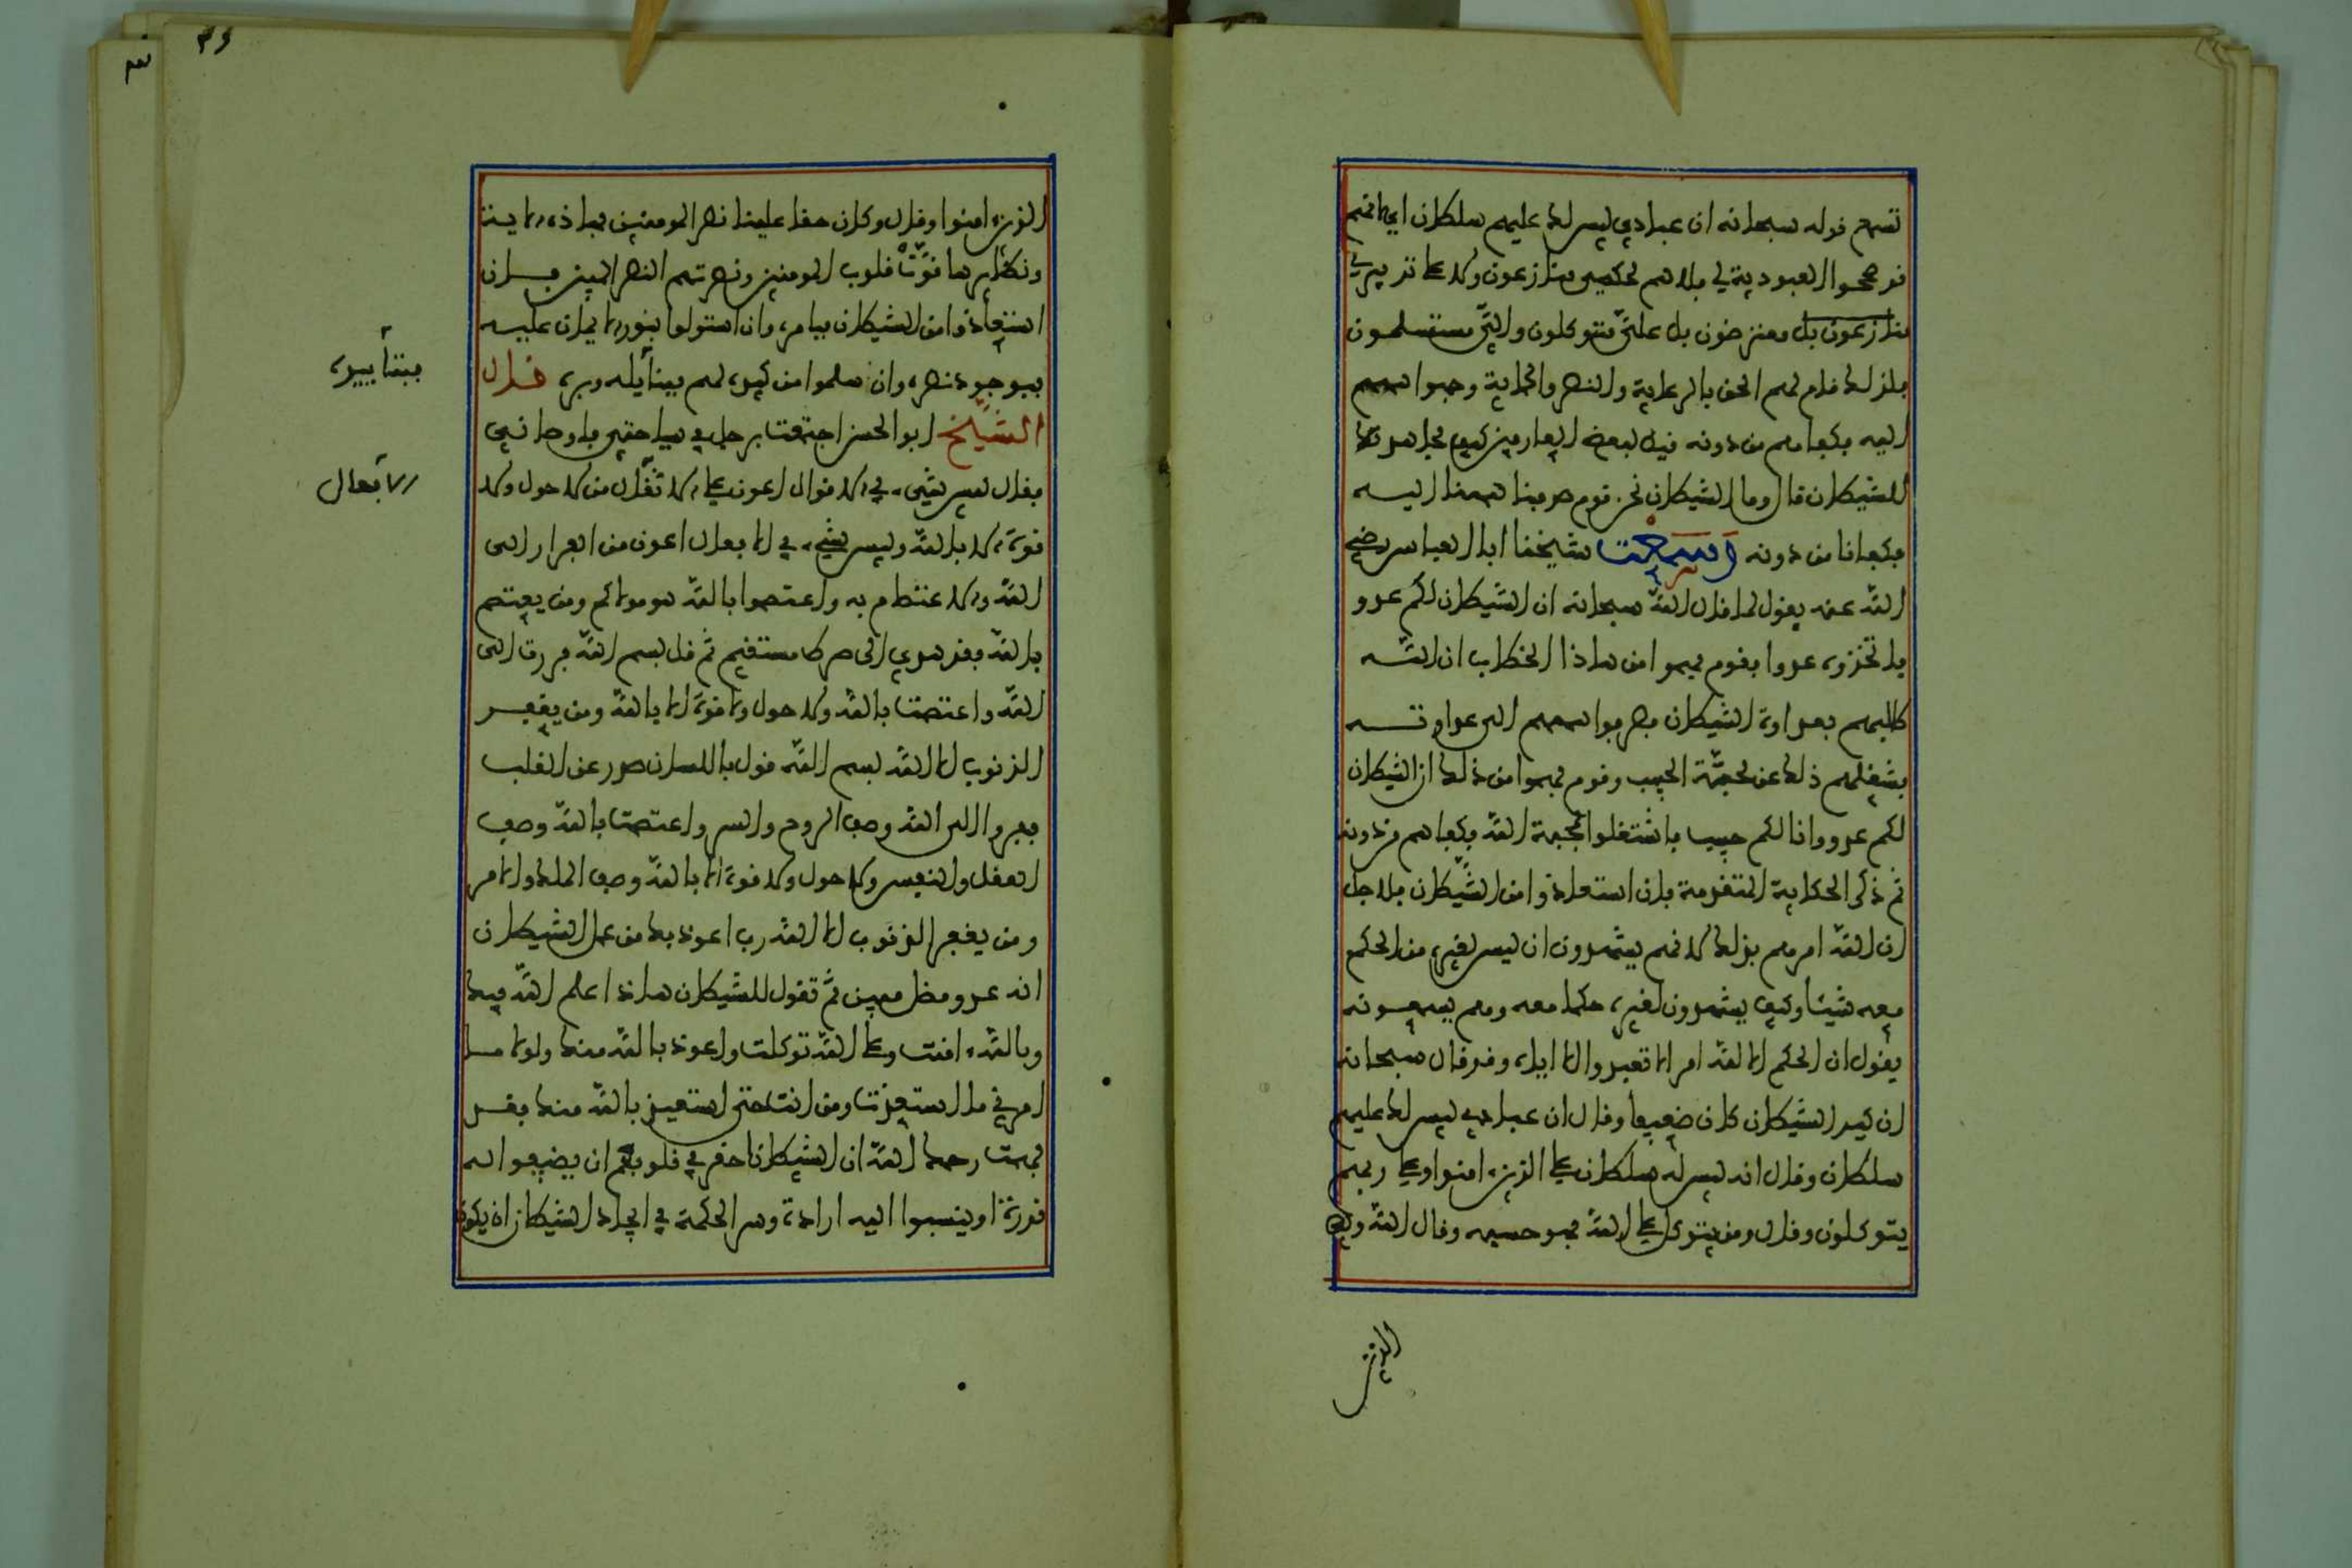 تسمع قوله سبحانه ان عبادي ليس لك عليهم سلطان اي انهم
صححوا العبودية لي بلا هم لحكمي منازعون ولا على تدبيري
منازعون بل معترضون بل علي متوكلون والي مستسلمون
فلذلك قام لهم الحق بالرعاية والنصر والحماية وجهوا هممهم
اليه فكفاهم من دونه قيل لبعض العارفين كيف مجاهدتك
للشيطان قال وما الشيطان نحن قوم صرفنا هممنا اليه
فكفانا من دونه وسمعت شيخنا ابا العباس رضي
الله عنه يقول لما قال الله سبحانه ان الشيطان لكم عدو
فاتخذوه عدوا فقوم فهموا من هاذا الخطاب ان الله
طالبهم بعداوة الشيطان فصرفوا هممهم الى عداوته
فشغلهم ذلك عن محبة الحبيب وقوم فهموا من ذلك ان الشيطان
لكم عدو وانا لكم حبيب فاشتغلوا بمحبة الله فكفاهم من دونه
ثم ذكر الحكاية المتقدمة فان استعاذوا من الشيطان فلاجل
ان الله امرهم بذلك لا انهم يشهدون ان ليس لغيره من الحكم
معه شيئا وكيف يشهدون لغيره حكما معه وهم يسمعونه
يقول ان الحكم الا لله امر الا تعبدوا الا اياه وقد قال سبحانه
ان كيد الشيطان كان ضعيفا وقال ان عبادي ليس لك عليهم
سلطان وقال انه ليس له سلطان على الذين امنوا وعلى ربهم
يتوكلون وقال ومن يتوكل على الله فهو حسبه وقال الله ولي
الذين
٣٤
الذين امنوا وقال وكان حقا علينا نصر المومنين فهاذه الاية
ونظايرها قوت قلوب المومنين ونصرتهم النصر المبين فان
استعاذوا من الشيطان فبامره وان استولوا بنور الايمان عليه
فبوجود نصره وان سلموا من كيده لهم فبتاييده وبره قال
بتأييده
الشيخ ابو الحسن اجتمعت برجل في سياحتي فاوصاني
فقال ليس شيء في الاقوال اعون على الافعال من لا حول ولا
الأفعال
قوة الا بالله وليس شيء في الافعال اعون من الفرار الى
الله والاعتصام به واعتصموا بالله هو مولاكم ومن يعتصم
بالله فقد هدي الى صراط مستقيم ثم قل بسم الله فررت الى
الله واعتصمت بالله ولا حول ولا قوة الا بالله ومن يغفر
الذنوب الا الله بسم الله قول باللسان صدر عن القلب
ففروا الى الله وصف الروح والسر واعتصمت بالله وصف
العقل والنفس ولا حول ولا قوة الا بالله وصف الملك والامر
ومن يغفر الذنوب الا الله رب اعوذ بك من عمل الشيطان
انه عدو مضل مبين ثم تقول للشيطان هاذا علم الله فيك
وبالله امنت وعلى الله توكلت واعوذ بالله منك ولولا ما
امرني ما استعذت ومن انت حتى استعيذ بالله منك فقد
فهمت رحمك الله ان الشيطان احقر في قلوبهم ان يضيفوا له
قدرة او ينسبوا اليه ارادة وسر الحكمة في ايجاد الشيطان ان يكون